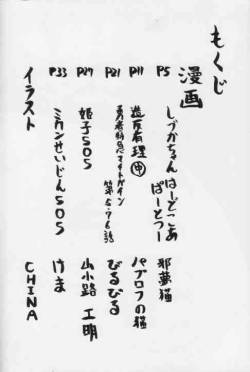 もくじ
漫画
P5 しづかちゃん はーどこあ ぱーとつー 邪夢猫
P11 造反有理㊥ パブロフの猫
P21 勇者特急マイトガイン 第5.7.6話 びるびる
P27 姫子SOS 山小路 工明
P33 ミカンせいじんSOS けま
イラスト CHINA